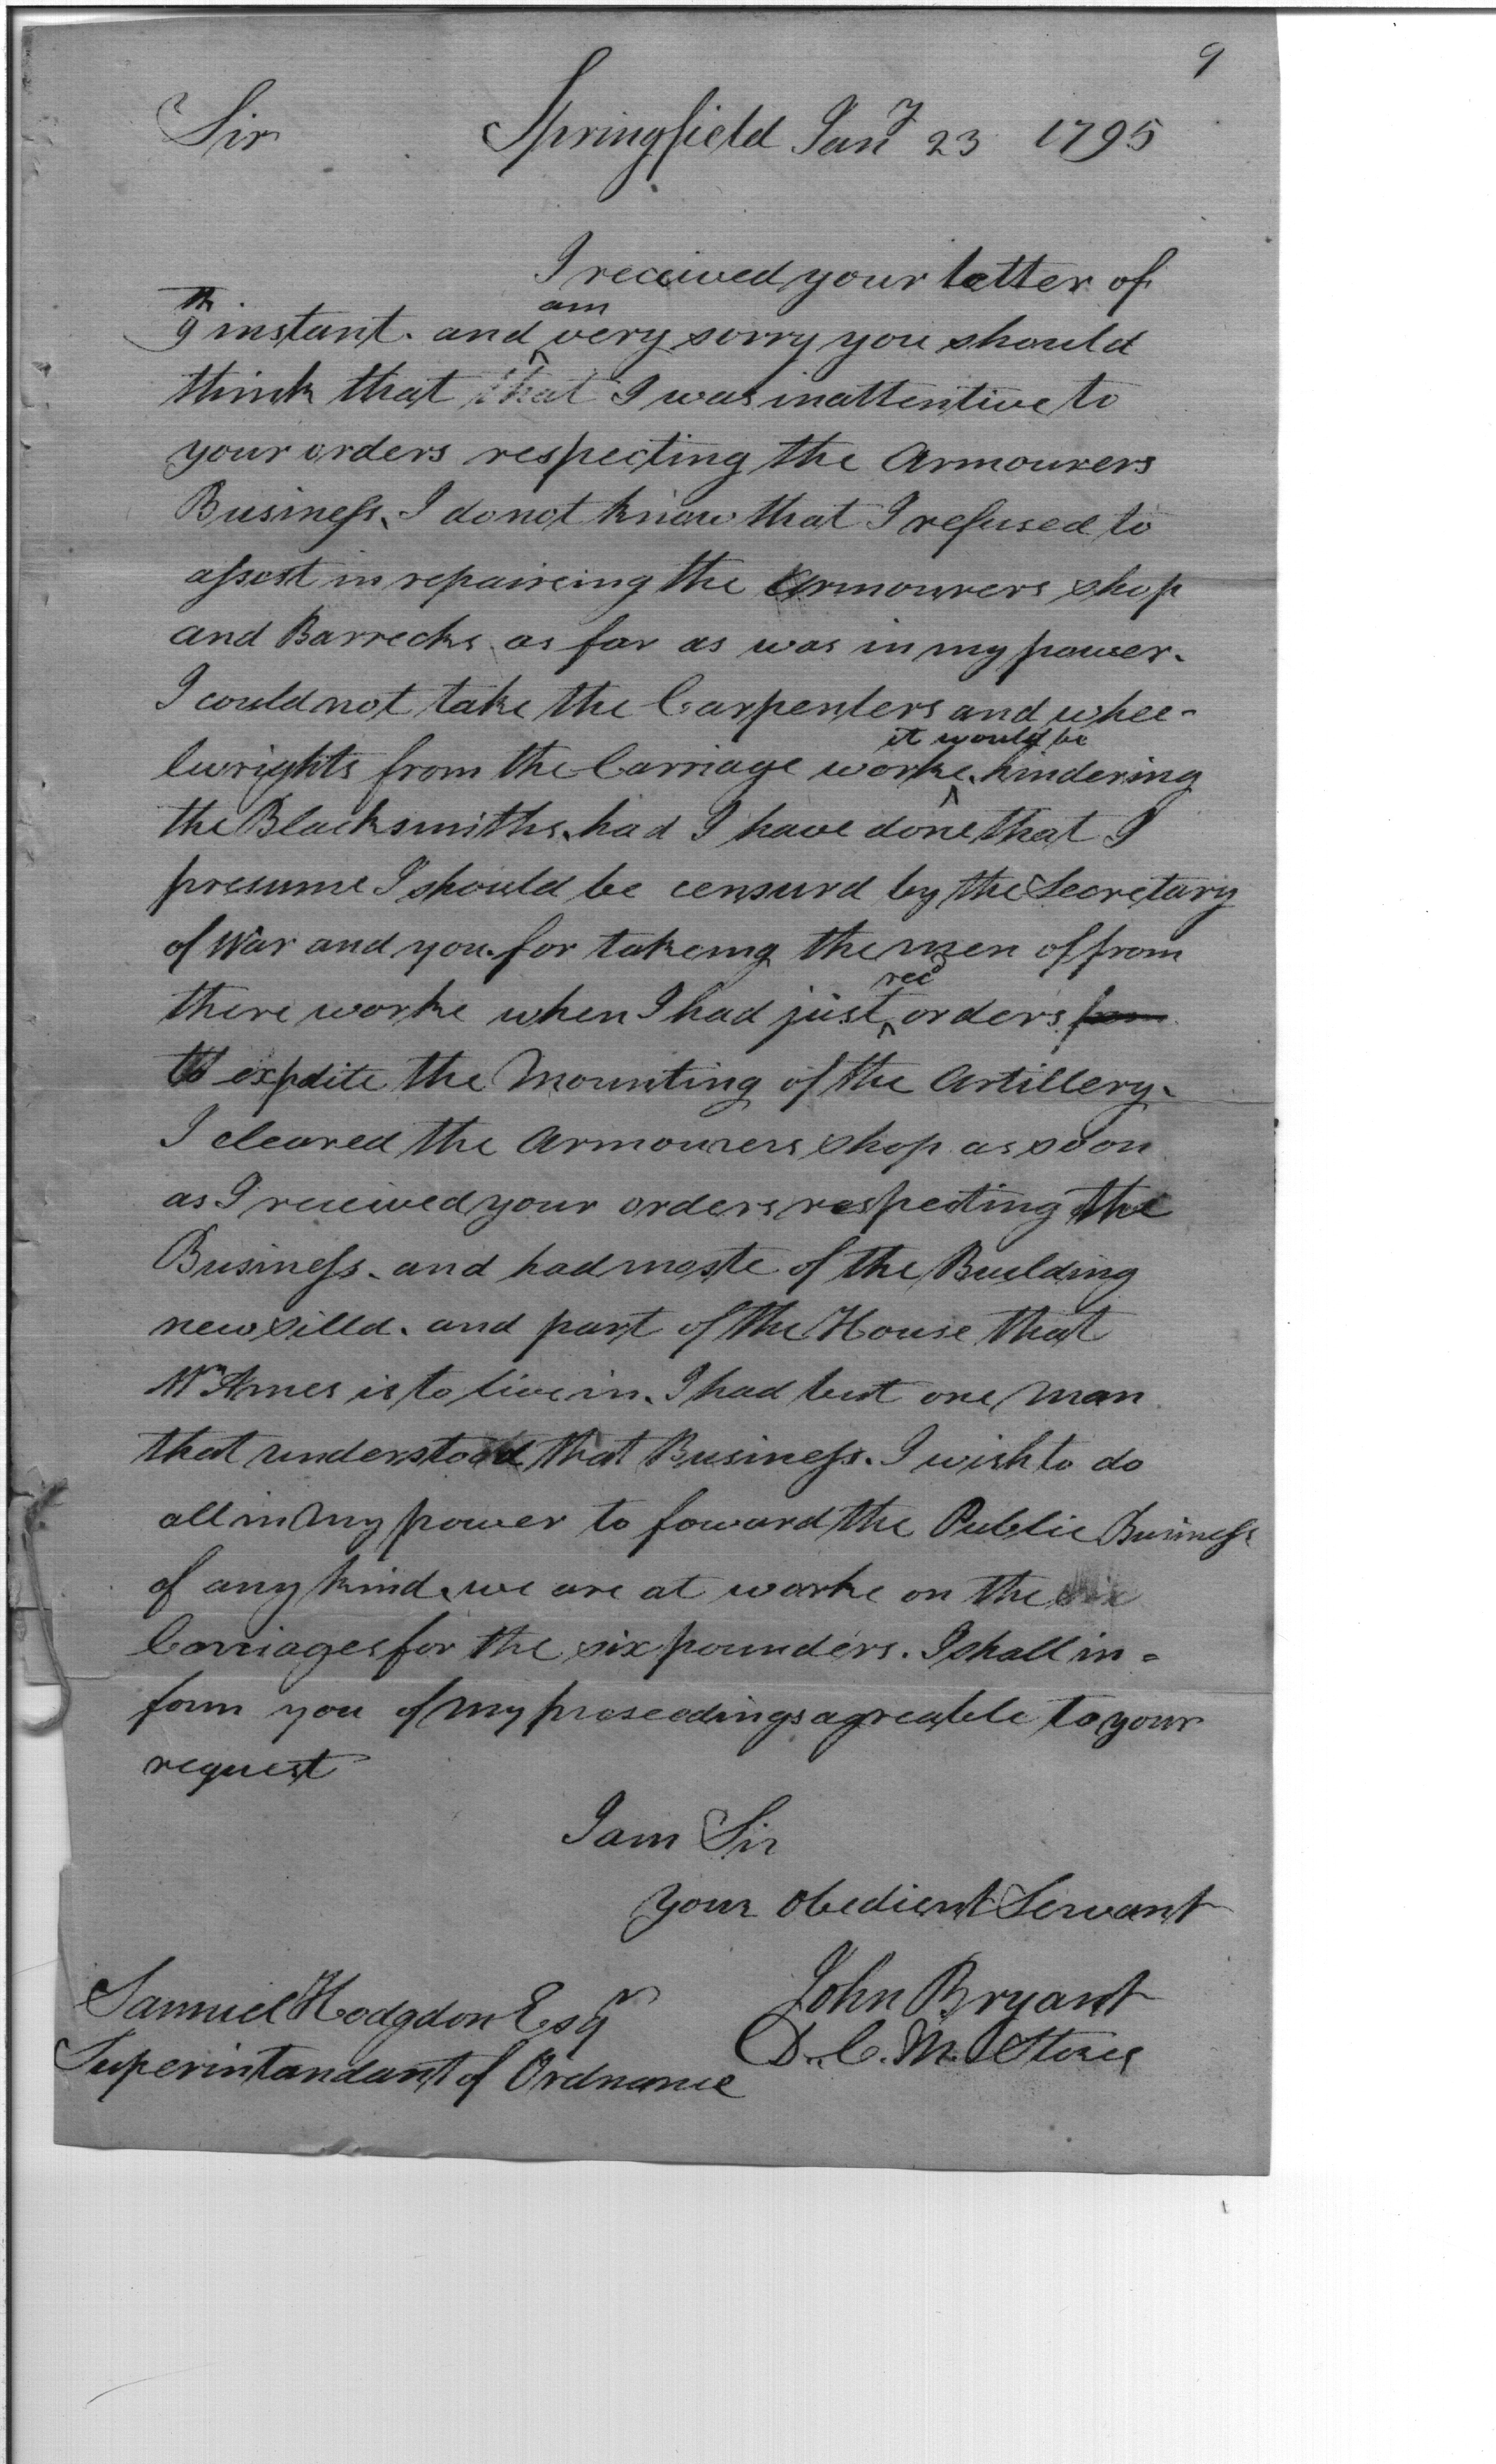 9
Sir Springfield Jany 23 1795
I received your letter of
9th instant. and am very sorry you should
think that that I was inattentive to
your orders respecting the Armourers
Business. I do not know that I refused to
assist in repaireing the Armourers shop
and Barrecks as far as was in my power.
I could not take the Carpenters and whee-
lwrights from the Carriage worke. it would be hindering
the Blacksmiths. had I have done that I
presume I should be censurd by the Secretary
of War and you. for takeing the men of from
there worke when I had just recd orders
to expdite the Mounting of the Artillery.
I cleared the Armourers shop as soon
as I received your orders respecting the
Business. and had moste of the Building
new silld. and part of the House that
Mr Ames is to live in. I had but one man
that understood that Business. I wish to do
all in my power to foward the Public Business
of any kind. we are at worke on the
Carriages for the six pounders. I shall in=
form you of my proseedings agreable to your
request
I am Sir
Your Obedient Servant
John Bryant
D. C. M. Stores
Samuel Hodgdon Esqr
Superintandant of Ordnance